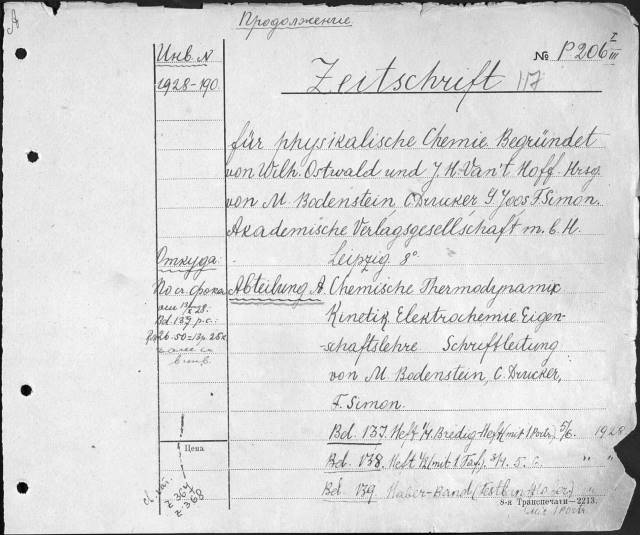 Продолжение.
Инв. N
1928-190
№ P206 I/III
Zeitschrift 117
für physikalische Chemie. Begründet
von Wilh. Ostwald und J. H. Van't Hoff. Hrsg.
von M. Bodenstein, C. Drucker, G. Joos F. Simon.
Akademische Verlagsgesellschaft m. b. H.
Leipzig. 8°
Откуда:
Abteilung A. Chemische Thermodynamik
Kinetik. Elektrochemie. Eigen-
schaftslehre. Schriftleitung
von M. Bodenstein, C. Drucker,
F. Simon.
Bd. 139 р.с.:
Bd. 137. Heft 1/4. Bredig-Heft (mit 1 Portr.) 5/6. 1928
Bd. 138. Heft 1/2 (mit 1 Taf.) 3/4. 5. 6. " "
Bd. 139 Haber-Band
Цена
z. 367
z. 368
8-я Транспечати—2213.